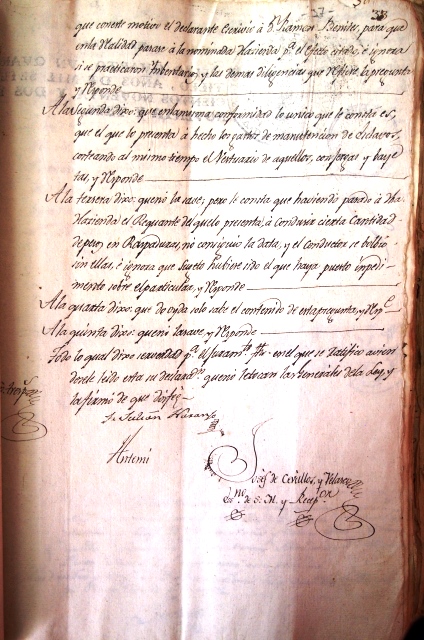 que coneste motivo el declarante Escrivió à Dn. Ramon Benites, para que
enla Realidad pasase à la nominada Hacienda pa. el efecto citado, è ignora
si se practicaron Inbentario, y las demas diligencias que refiere la pregunta
y Responde
A la segunda dixo: que en la misma conformidad lo unico que le consta es,
que el que lo presenta à hecho los gastos de manutencion de Esclavos,
costeando al mismo tiempo el Vestuario de aquellos, con fergas y baye
tas, y Responde
A la tersera dixo: que no la save; pero le consta que haviendo pasado à dha
Hacienda el Requante del que lo presenta, à condusir cierta Cantidad
de peso en Raspaduras, no consiguió la data, y el Conductor se bolvio
sin ellas, è ignora que Sugeto hubiere sido el que haya puesto impedi-
mento sobre el particular, y Responde
A la quarta dixo: que de oydas solo sabe el contenido de esta pregunta, y Respe.
A la quinta dixo: que no la save y Responde
Todo lo qual dixo ser verdad pr. el Juramto. fho en el que se ratificó avien
dosele leido esta su declaron. que no le tocan las Generales de la Ley, y
la firmó de que doy fee
Julian Naranjo
Antemi
Josef de Cevallos, y Velasco
Esno. de S. M. y Recepor.